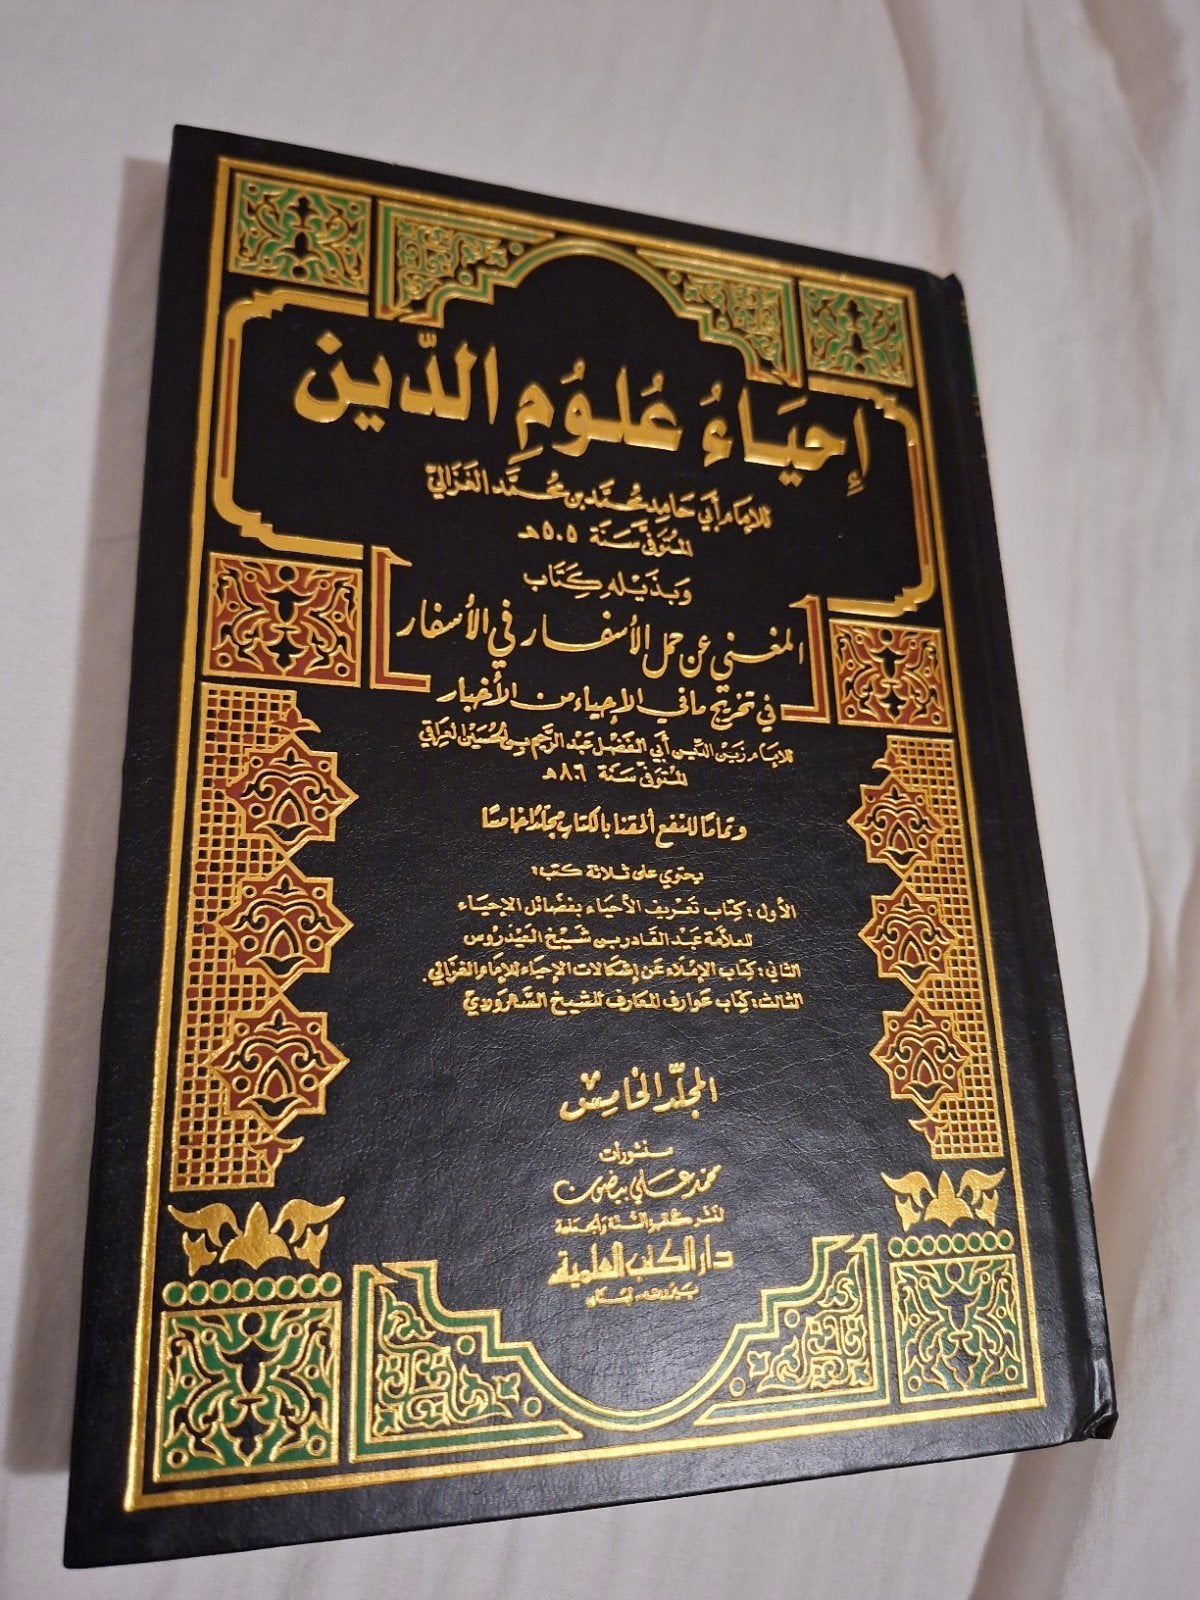 إِحيَاءُ عُلُومِ الدّين
للإمام أبي حَامِد محمَّد بن محمَّد الغَزَالي
المتوَفّى سَنَة ٥٠٥هـ
وَبذَيْله كِتَاب
المغني عن حمل الأسفار في الأسفار
في تخريج ما في الإحياء من الأخبار
للإمام زين الدّين أبي الفضل عبد الرّحيم بن الحسَين العراقي
المتوفّى سَنَة ٨٠٦هـ
وتمامًا للنفع ألحقنا بالكتاب مجلّدًا خامسًا
يحتوي على ثلاثة كتب:
الأول: كِتاب تعريف الأحياء بفضائل الإحيَاء
للعلاّمة عبْد القادر بن شيْخ العيْدروس
الثاني: كتاب الإملاء عن إشكالات الإحياء للإمام الغزالي.
الثالث: كتاب عوارف المعارف للشيخ السّهروردي
المجلّد الخامِس
منشورات
محمد علي بيضون
لنشر كتب السنة والجماعة
دار الكتب العلمية
بيروت - لبنان